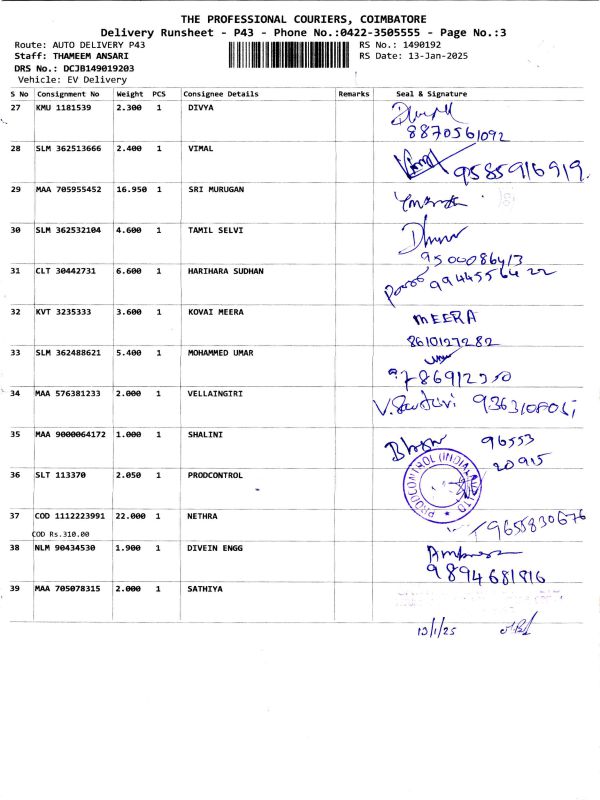 THE PROFESSIONAL COURIERS, COIMBATORE
Delivery Runsheet - P43 - Phone No.:0422-3505555 - Page No.:3
Route: AUTO DELIVERY P43 RS No.: 1490192
Staff: THAMEEM ANSARI RS Date: 13-Jan-2025
DRS No.: DCJB149019203
Vehicle: EV Delivery
S No Consignment No Weight PCS Consignee Details Remarks Seal & Signature
27 KMU 1181539 2.300 1 DIVYA
8870561092
28 SLM 362513666 2.400 1 VIMAL
9585916919.
29 MAA 705955452 16.950 1 SRI MURUGAN
30 SLM 362532104 4.600 1 TAMIL SELVI
9500086413
31 CLT 30442731 6.600 1 HARIHARA SUDHAN
9944556422
32 KVT 3235333 3.600 1 KOVAI MEERA MEERA
8610127282
33 SLM 362488621 5.400 1 MOHAMMED UMAR
34 MAA 576381233 2.000 1 VELLAINGIRI
35 MAA 9000064172 1.000 1 SHALINI 96553
20915
36 SLT 113370 2.050 1 PRODCONTROL PRODCONTROL (INDIA)
37 COD 1112223991 22.000 1 NETHRA 9655830676
COD Rs.310.00
38 NLM 90434530 1.900 1 DIVEIN ENGG
9894681816
39 MAA 705078315 2.000 1 SATHIYA
13/1/25